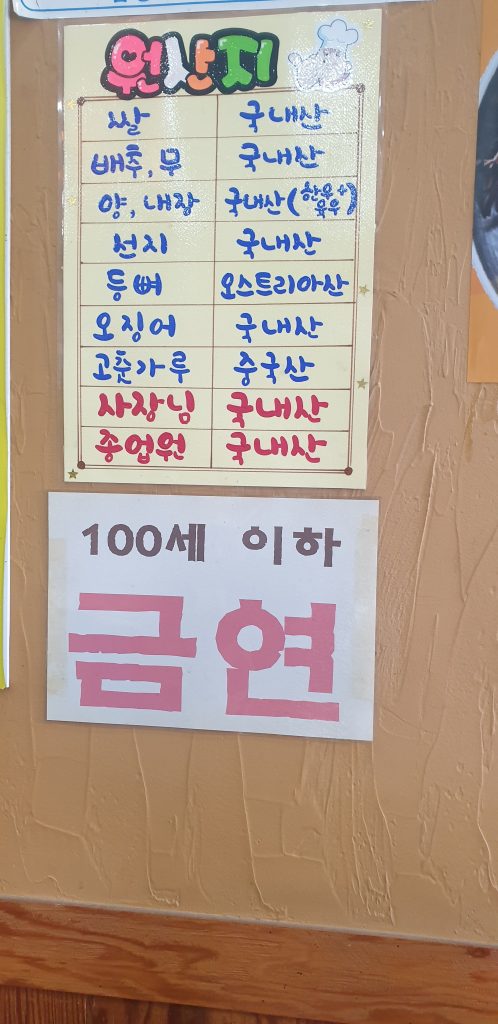 원산지
쌀 국내산
배추, 무 국내산
양, 내장 국내산(한우+육우)
선지 국내산
등뼈 오스트리아산
오징어 국내산
고춧가루 중국산
사장님 국내산
종업원 국내산
100세 이하
금연